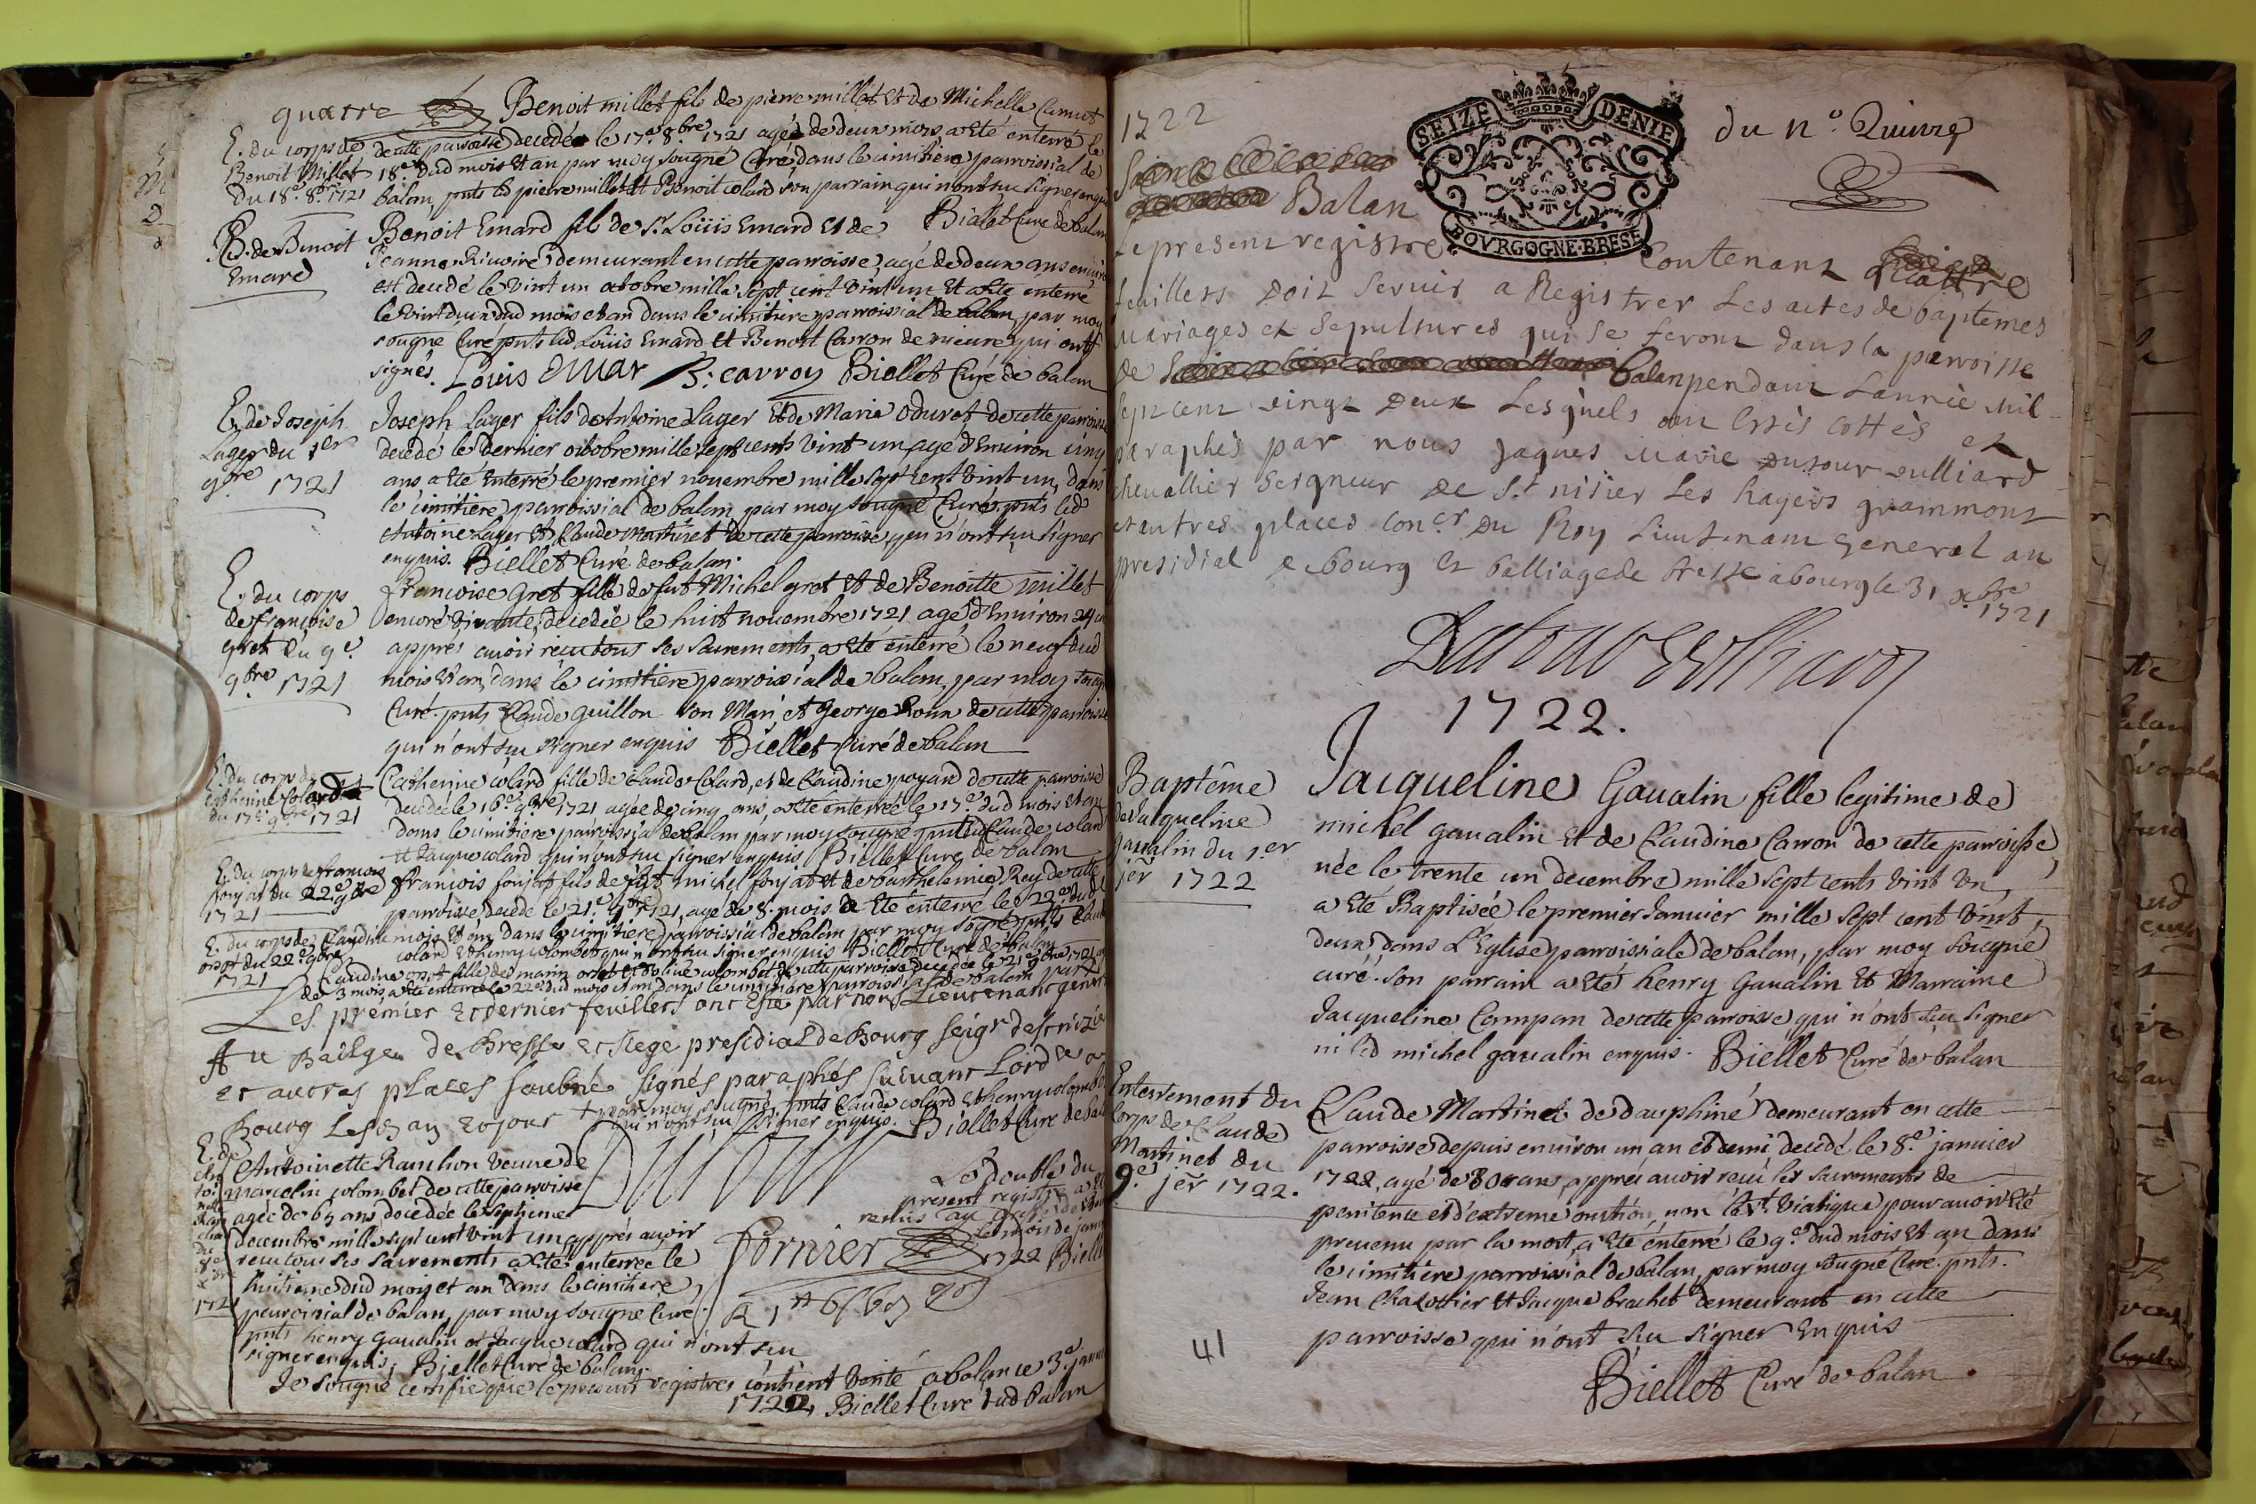 quatre
Benoit millet fils de pierre millet et de Michelle Camut
E. du corps de
Benoit Millet
du 18e. 8bre 1721
de cette paroisse decedé le 17e 8bre 1721 agé de deux mois a eté enterré le
18e. dud mois et an par moy sougné Curé dans le cimitiere parroissial de
balan, pnts led pierre millet et Benoit colard son parrain qui n'ont su signer enquis
Biellet Curé de balan
E. de Benoit
Emard
Benoit Emard fils de Sr. Loüis Emard et de
Jeanne demeurant en cette parroisse, agé de deux ans environ
est decedé le vint un octobre mille sept cent vint un et a eté enterré
le vint deux dud mois et an dans le cimitiere parroissial de balan, par moy
sougné Curé pnts led Loüis Emard et Benoit Carron de qui ont
signés. Louis Emar B: carron Biellet Curé de balan
E. de Joseph
Lager du 1er
9bre 1721
Joseph Lager fils de Antoine Lager et de Marie oduret de cette parroisse
decedé le dernier octobre mille sept cents vint un agé d'Environ cinq
ans a eté enterré le premier novembre mille sept cent vint un, dans
le cimitiere parroissial de balan, par moy sougné Curé pnts led
Antoine Lager et Claude Martinet de cette parroisse qui n'ont su signer
enquis. Biellet Curé de balan
E. du corps
de francoise
gret du 9e.
9bre 1721
francoise Gret fille de fut Michel gret et de Benoitte millet
encore vivante, decedée le huit novembre 1721 agé d'Environ 24 ans
apprés avoir receu tous ses sacrements, a eté enterré le neuf dud
mois et an, dans le cimitiere parroissial de balan, par moy sougné
Curé. pnts Claude Guillon son Mari et George de cette parroisse
qui n'ont su signer enquis Biellet Curé de balan
E. du corps de
Catherine Colard
du 17e 9bre 1721
Catherine colard fille de claude Colard, et de Claudine poyard de cette parroisse
decedée le 16e. 9bre 1721 agée de cinq ans, a eté enterrée le 17e dud mois et an
dans le cimitiere parroissial de balan par moy sougné pnts led Claude colard
et Jacque colard qui n'ont su signer enquis Biellet Curé de balan
E. du corps de francois
fonjat du 22e. 9bre
1721
francois fonjat fils de fut michel fonjat et de barthelemie Rey de cette
parroisse, decedé le 21e. 9bre 1721, agé de 8. mois a eté enterré le 22e. dud
mois et an, dans le cimitiere parroissial de balan par moy sougné pnts Claude
colard et henry colombet qui n'ont su signer enquis Biellet Curé de balan
E. du corps de Claudine
oret du 22e. 9bre
1721
Claudine oret fille de marin oret et de colombet de cette parroisse decedée le 21e 9bre 1721 agée
de 3 mois, a eté enterrée le 22e dud mois et an dans le cimitiere parroissial de balan
Les premier et dernier feuillets ont este par nous Lieutenant general
Au Bailge. de Bresse et siege presidial de Bourg seigr de st nizier
et autres places soubné signés paraphés suivant Lord.
Bourg Les an et jour
+ par moy sougné, pnts Claude colard et henry colombet
qui n'ont su signer enquis. Biellet Curé de balan
E. de
An
toi
nette
du
8e
xbre
1721
Antoinette Ranchon veuve de
Marcelin colombet de cette parroisse
agée de 65 ans decedée le septieme
decembre mille sept cent vint un apprés avoir
receu tous ses sacrements a eté enterrée le
huitieme dud mois et an dans le cimitiere
parroissial de balan, par moy sougné Curé
pnts henry Gavalin et Jacque colard qui n'ont su
signer enquis, Biellet Curé de balan
Le double du
present registre a eté
remis au
1722 Biellet
fornier
Je sougné certifie que le present registre contient verité a balan ce 3e. janvier
1722, Biellet Curé dud balan
1722
du n°.
SEIZE DENIE
BOVRGOGNE·BRESSE
Balan
Le present registre Contenant quattre
feuillets doit servir a Registrer Les actes de baptemes
mariages et sepultures qui se feront dans la parroisse
de Balan pendant Lannée mil
sept cent vingt deux Lesquels ont estés cottés et
paraphés par nous Jaques marie dutour vulliard
chevallier seigneur de St nisier Les hayers grammont
et autres places coner. du Roy Lieutenant general au
presidial e bourg et balliage de bresse a bourg le 31 xbre
1721
Dutour Vulliard
1722.
Baptême
de Jacqueline
Gavalin du 1.er
jer 1722
Jacqueline Gavalin fille legitime de
michel gavalin et de Claudine Carron de cette parroisse,
née le trente un decembre mille sept cents vint un,
a eté Baptisée le premier Janvier mille sept cent vint
deux, dans L'Eglise parroissiale de balan, par moy sougné
curé. son parrain a eté henry Gavalin et Marraine
Jacqueline Campan de cette parroisse, qui n'ont su signer
ni led michel gavalin enquis. Biellet Curé de balan
Enterrement du
Corps de Claude
Martinet du
9.e jer 1722.
Claude Martinet de dauphiné demeurant en cette
parroisse depuis environ un an et demi, decedé le 8.e janvier
1722, agé de 80 ans, apprés avoir receu les sacrements de
penitence et d'extreme onction, non le st. viatique pour avoir eté
prevenu par la mort, a eté enterré le 9.e dud mois et an dans
le cimitiere parroissial de balan, par moy sougné Curé. pnts.
Jean Chalottier et Jacque brachet demeurant en cette
parroisse qui n'ont su signer enquis
Biellet Curé de balan.
41